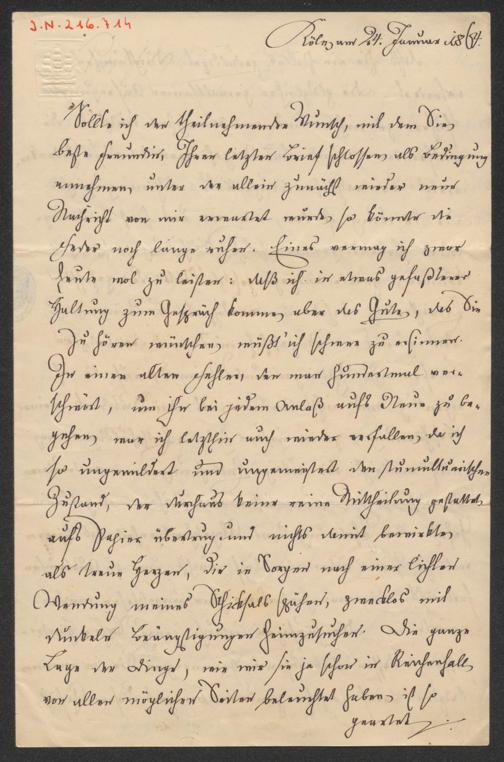 J.N. 216.714
Köln, am 24. Januar 1884.
Sollte ich den theilnehmenden Wunsch, mit dem Sie,
beste Freundin, Ihren letzten Brief schlossen als Bedingung
annehmen, unter der allein zunächst wieder neue
Nachricht von mir erwartet würde, so könnte die
Feder noch lange ruhen. Eines vermag ich zwar
heute wol zu leisten: daß ich in etwas gefaßterer
Haltung zum Gespräch komme, aber das Gute, das Sie
zu hören wünschen, müßt' ich schwer zu ersinnen.
In einen alten Fehler, den man hundertmal ver-
schwört, um ihn bei jedem Anlaß aufs Neue zu be-
gehen, war ich letzthin auch wieder verfallen, da ich
so ungemildert und ungemeistert den tumultuarischen
Zustand, der durchaus keine reine Mittheilung gestattet,
aufs Papier übertrug und nichts damit bewirkte,
als treue Herzen, die in Sorgen nach einer lichten
Wendung meines Schicksals spähen, zwecklos mit
dunkeln Beängstigungen heimzusuchen. Die ganze
Lage der Dinge, wie wir sie ja schon in Reichenhall
von allen möglichen Seiten beleuchtet haben, ist so
geartet,